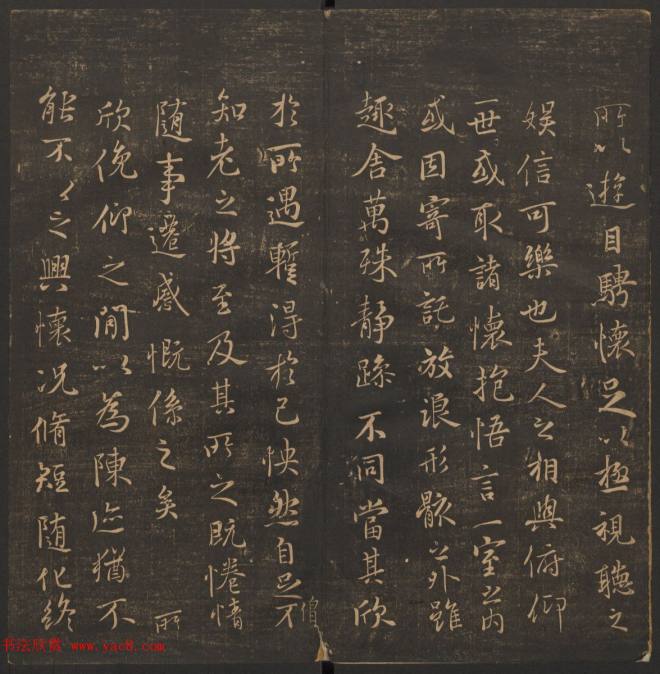 所以遊目騁懷足以極視聽之
娛信可樂也夫人之相與俯仰
一世或取諸懷抱悟言一室之內
或因寄所託放浪形骸之外雖
趣舍萬殊靜躁不同當其欣
僧
於所遇暫得於己怏然自足不
知老之將至及其所之既惓情
隨事遷感慨係之矣 所
欣俛仰之間以為陳迹猶不
能不以之興懷況脩短隨化終
书法欣赏 www.yac8.com